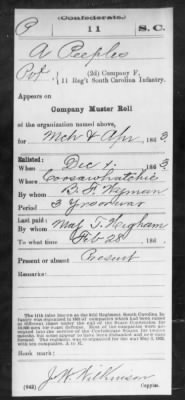 (Confederate.)
P 11 S.C.
A Peeples
Pvt, (2d) Company F,
11 Reg't South Carolina Infantry.
Appears on
Company Muster Roll
of the organization named above,
for Mch & Apr, 1863.
Enlisted:
When Dec 4, 186
Where Coosawhatchie
By whom B. F. Wyman
Period 3 Yrs or war
Last paid:
By whom Maj T. Weigham
To what time Feb 28, 186 .
Present or absent Present
Remarks:
Book mark:
(642) J. W. Wilkinson
Copyist.